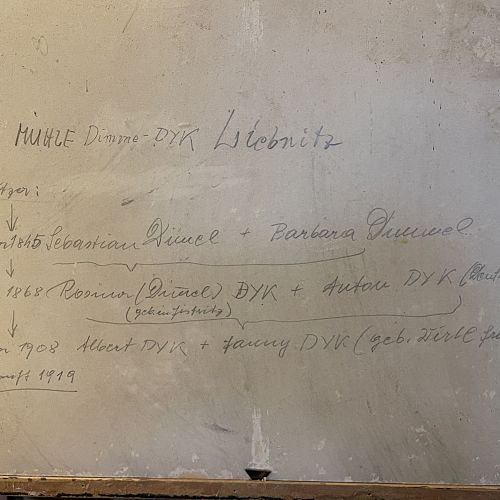 MÜHLE Dimme-DYK Liebnitz
tzer:
1845 Sebastian Dimel + Barbara Dimmel
1868 Rosina (Dimel) DYK + Anton DYK
1908 Albert DYK + Fanny DYK (geb.
1919